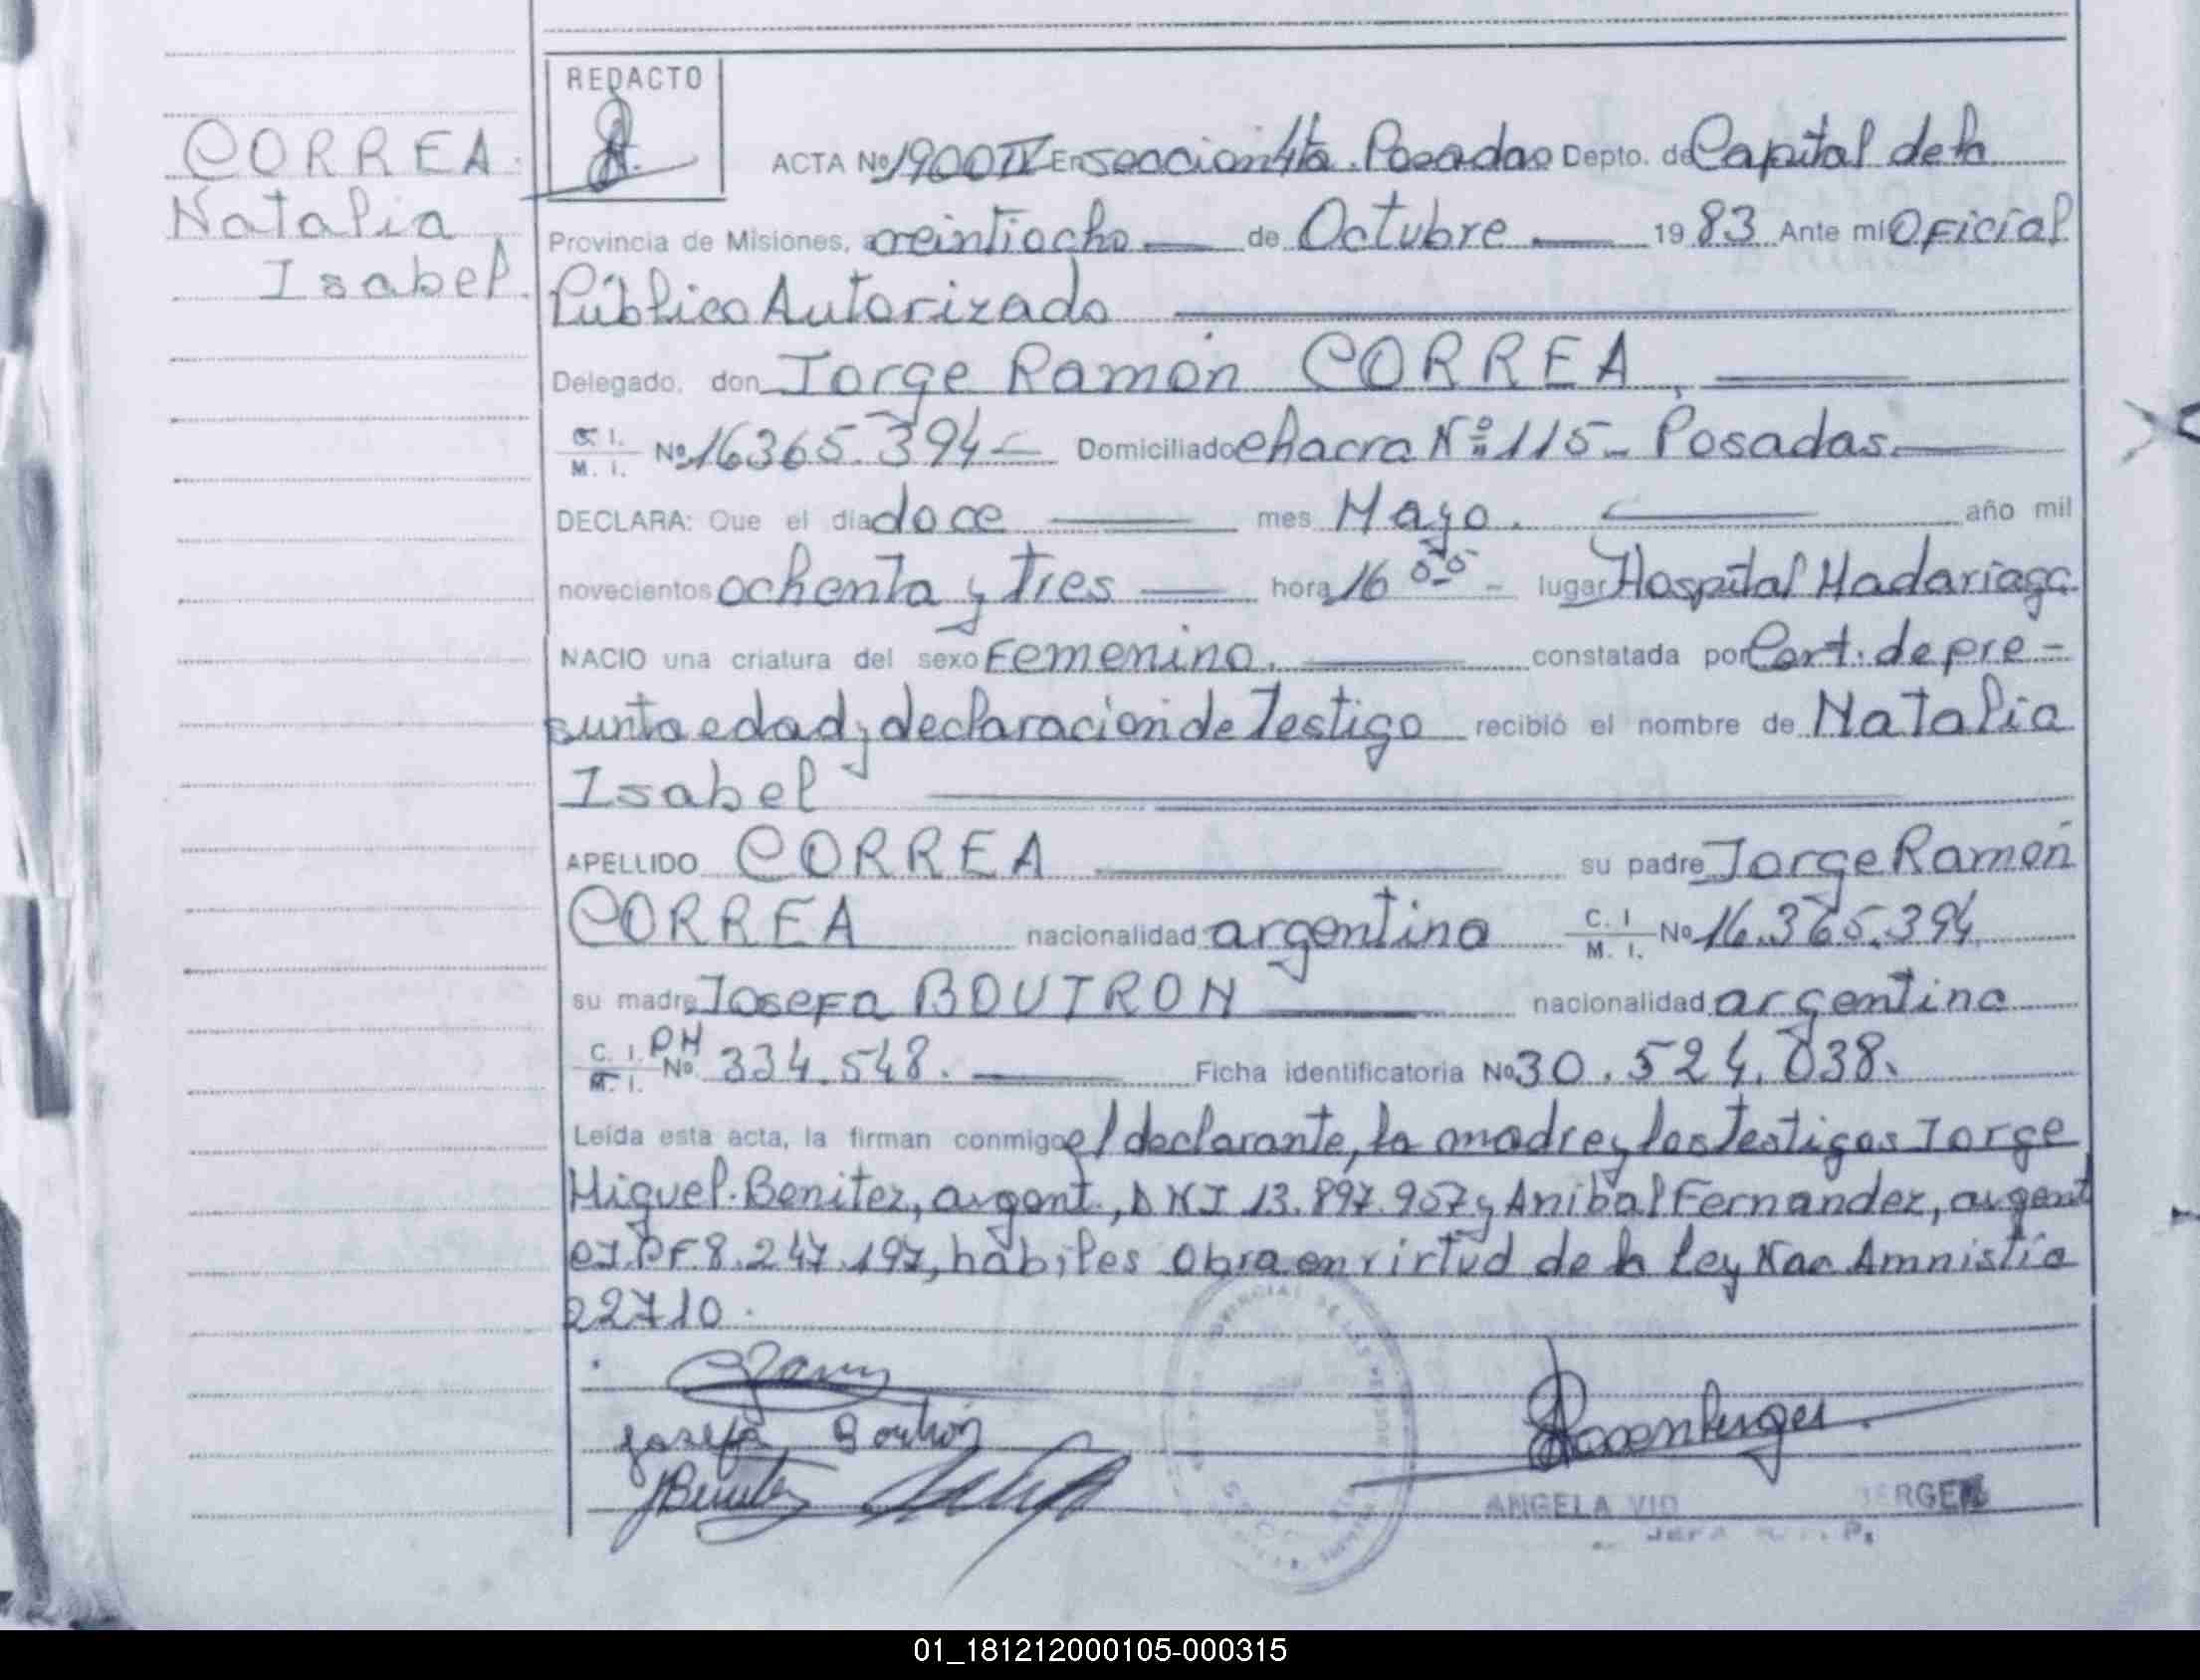 CORREA
Natalia
Isabel
REDACTO
ACTA Nº 1900 IV En seccion 4ta. Posadas Depto. de Capital de la
Provincia de Misiones, a veintiocho de Octubre 1983 Ante mi Oficial
Público Autorizado
Delegado, don Jorge Ramón CORREA,
C. I. M. I. Nº 16365.394 Domiciliado chacra Nº 115 - Posadas.
DECLARA: Que el día doce mes Mayo. año mil
novecientos ochenta y tres hora 16 05 - lugar Hospital Madariaga
NACIO una criatura del sexo Femenino. constatada por Cert. de pre-
sunta edad y declaracion de Testigo recibió el nombre de Natalia
Isabel
APELLIDO CORREA su padre Jorge Ramón
CORREA nacionalidad argentina C. I M. I. Nº 16.365.394
su madre Josefa BOUTRON nacionalidad argentina
C. I. M. I. PN Nº 334.548. Ficha identificatoria Nº 30.524.038.
Leída esta acta, la firman conmigo el declarante, la madre y los Testigos Jorge
Miguel Benitez, argent., DNI 13.897.957 y Anibal Fernandez, argent
CI.PF 8.247.197, habiles Obra en virtud de la Ley Nac Amnistía
22710.
Josefa Boutrón
JBenitez
Rosenberger
ANGELA VID BERGER
JEFA P.
01_181212000105-000315